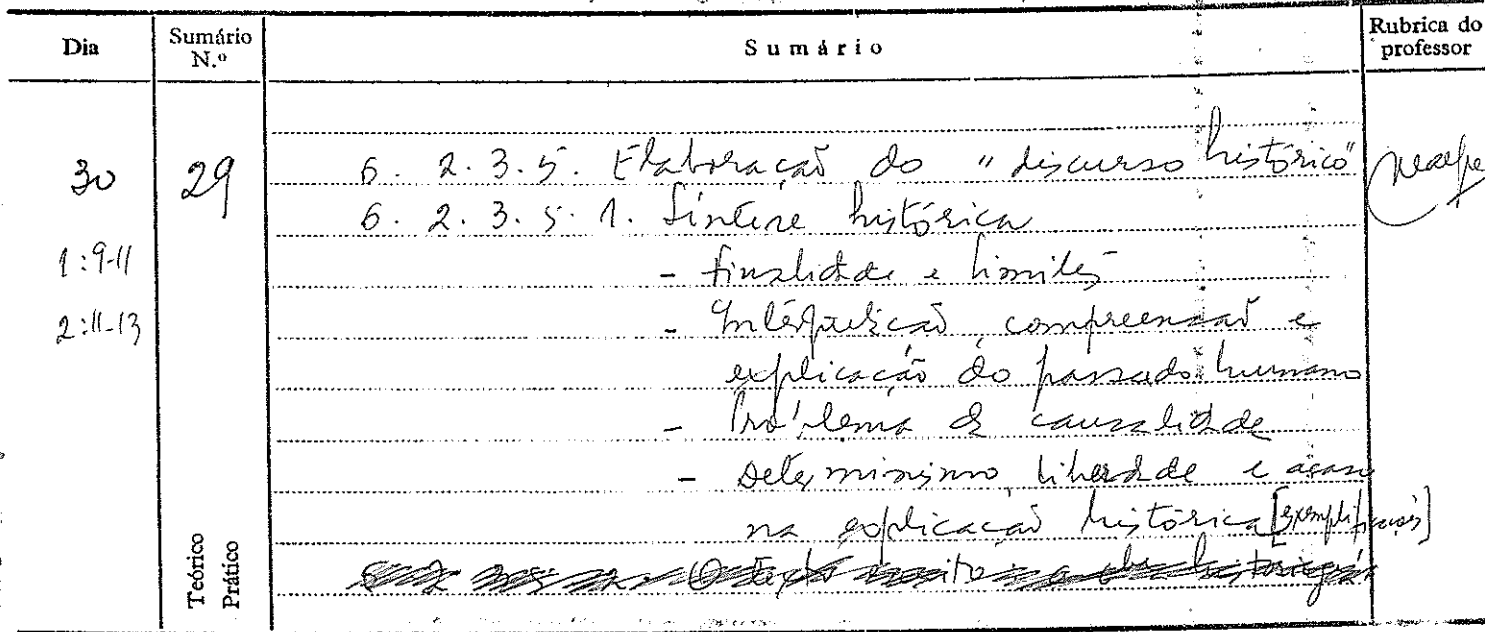 Dia Sumário N.º Sumário Rubrica do professor
30 29 6. 2. 3. 5. Elaboração do "discurso histórico"
6. 2. 3. 5. 1. Síntese histórica
1: 9-11 - finalidade e limites
2: 11-13 - Interpretação, compreensão e
explicação do passado humano
- Problema da causalidade
- Determinismo, liberdade e acaso
na explicação histórica [exemplificações]
Teórico
Prático